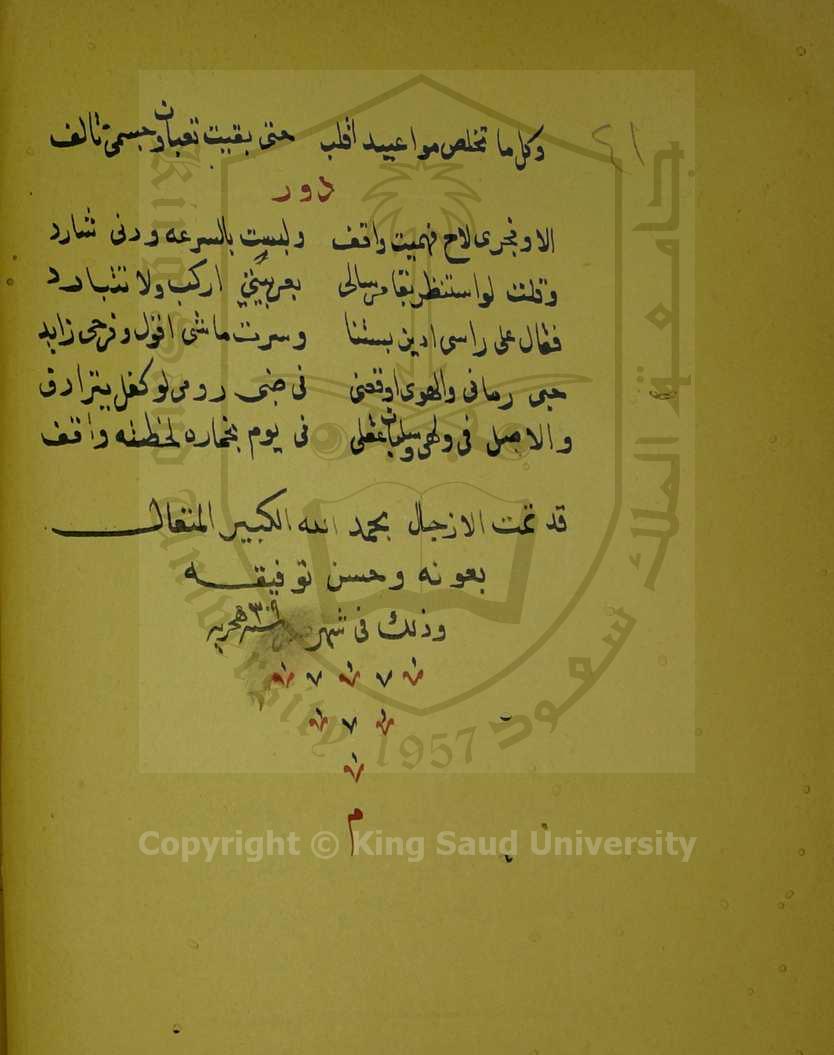 ٤١
وكل ما تخلص مواعيد اقلب حتى بقيت تعبان وجسمى تالف
دور
الا وفجرى لاح فهميت واقف ولبست بالسرعه ودنى شارد
وقلت لواستنظر بقا مرسالى بعربيتي اركب ولا نتبادرد
فقال على راسى ادين بستنا وسرت ماشى اقول وفرحى زايد
حبى رمانى والهوى اوقعنى فى جنى رومى لو كفل يترادق
والاصل فى ولهى وسلبان عقلى فى يوم بخماره لحظته واقف
قد تمت الازجال بحمد الله الكبير المتعال
بعونه وحسن توفيقه
وذلك فى شهر سنة ١٣٠٩ هجريه
م
جامعة الملك سعود
King Saud University
1957
Copyright © King Saud University